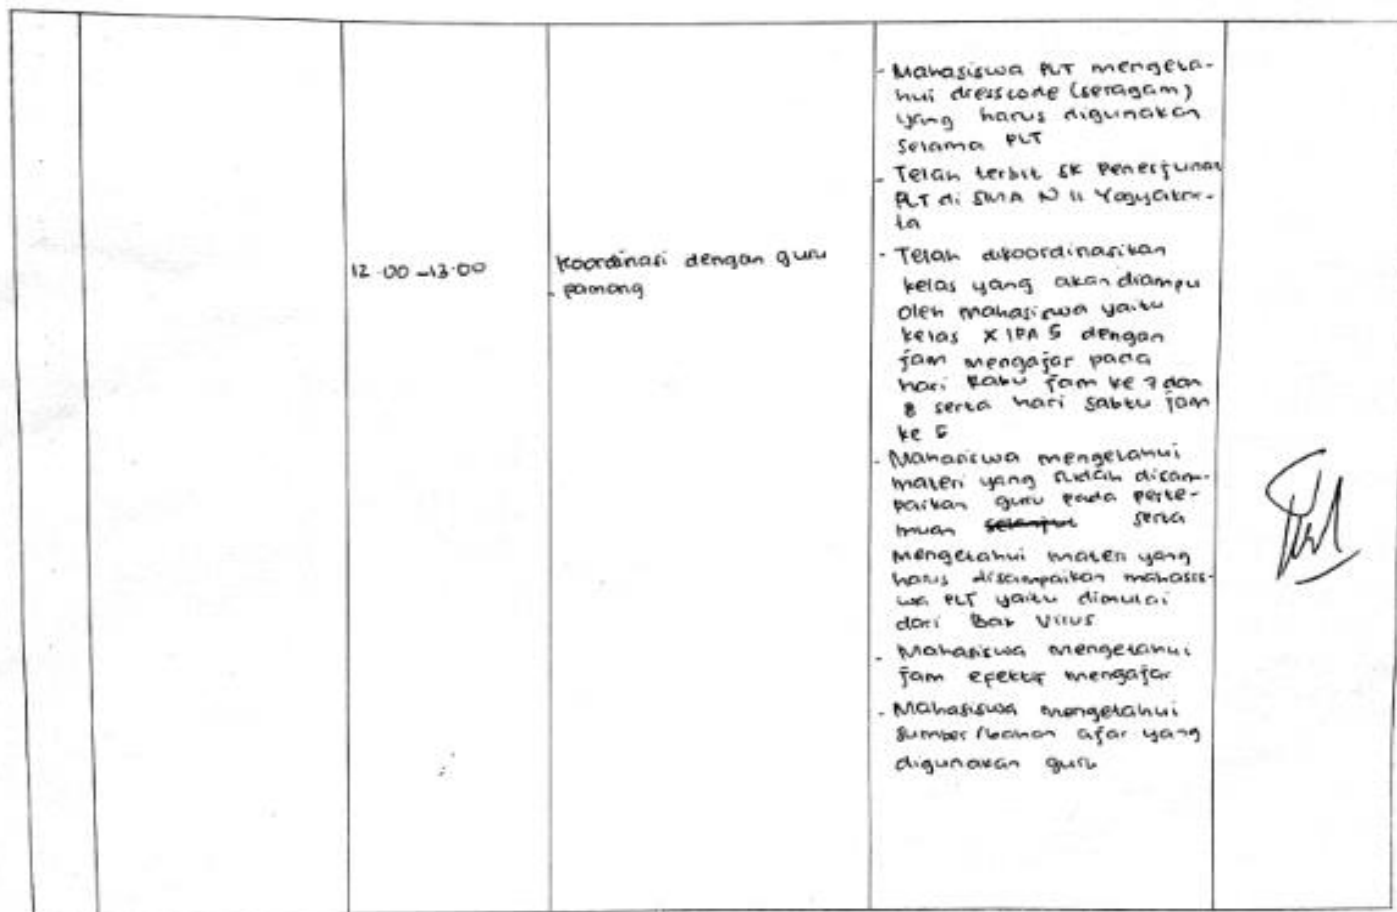 - Mahasiswa PLT mengeta-
hui dresscode (seragam)
yang harus digunakan
selama PLT
- Telah terbit SK Penerjunan
PLT di SMA N 11 Yogyakar-
ta
12.00 - 13.00
Koordinasi dengan guru
pamong
- Telah dikoordinasikan
kelas yang akan diampu
oleh mahasiswa yaitu
kelas X IPA 5 dengan
jam mengajar pada
hari Rabu jam ke 7 dan
8 serta hari Sabtu jam
ke 5
- Mahasiswa mengetahui
materi yang sudah disam-
paikan guru pada perte-
muan selanjut serta
mengetahui materi yang
harus disampaikan mahasis-
wa PLT yaitu dimulai
dari Bab Virus
- Mahasiswa mengetahui
jam efektif mengajar
- Mahasiswa mengetahui
sumber/bahan ajar yang
digunakan guru